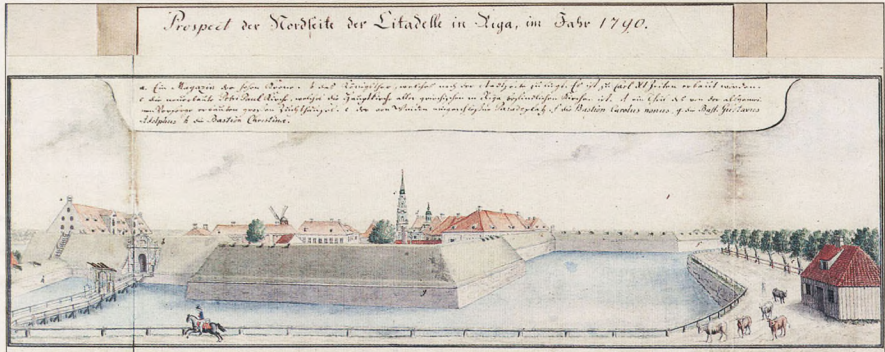 Prospect der Nordseite der Citadelle in Riga, im Jahr 1790.
a. Ein Magazin der hohen Krone. b das Königsthor, welches nach der Stadtseite zu liegt. Es ist zu Carl XI Zeiten erbaut worden.
c die neuerbaute Petri Pauli Kirche, welche die Hauptkirche aller griechischen in Riga befindlichen Kirchen ist. d ein Theil des von der
erbauten grossen e der von eingerichtete Paradeplatz. f die Bastion Carolus nonus. g. die Bast. Gustavus
Adolphus h die Bastion Christine.